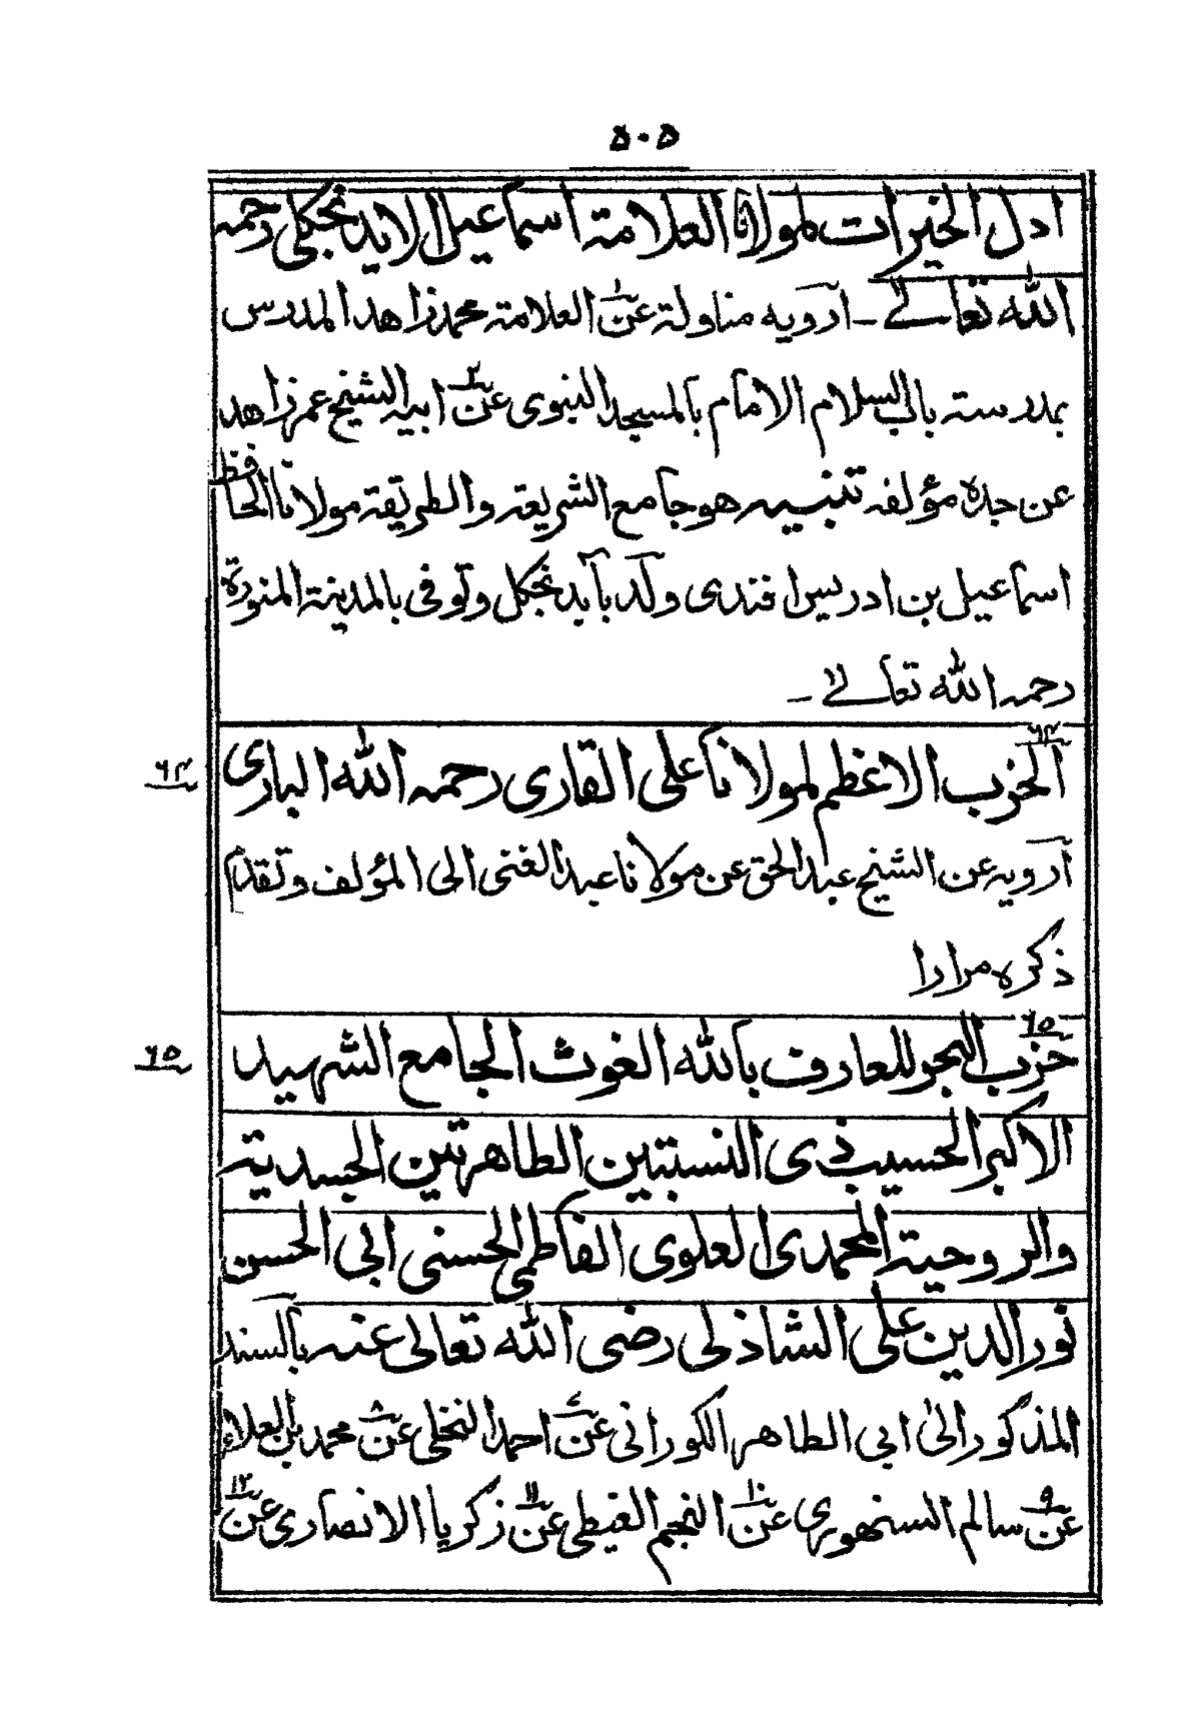 ٥٠٥
ادل الخيرات لمولانا العلامة اسماعيل الايدنجكلى رحمه
الله تعالے ـ آرويه مناولة عن١ العلامة محمد زاهد المدرس
بمدرسته باب السلام الامام بالمسجد النبوى عن٢ ابيه الشيخ عمر زاهد
عن جده مؤلفه تنبيه هو جامع الشريعة والطريقة مولانا الحافظ
اسماعيل بن ادريس افندى ولد بآيدنجكل وتوفى بالمدينة المنورة
رحمه الله تعالے ـ
٦٤
الحزب الاعظم لمولانا على القارى رحمه الله البارى
٦٤
آرويه عن الشيخ عبد الحق عن مولانا عبد الغنى الى المؤلف وتقدم
ذكره مرارا
٦٥
حزب البحر للعارف بالله الغوث الجامع الشهيد
٦٥
الاكبر الحسيب ذى النسبتين الطاهرتين الجسدية
والروحية المحمدى العلوى الفاطمى الحسنى ابى الحسن
نور الدين على الشاذلى رضى الله تعالى عنه بالسند
المذكور الى ابى الطاهر الكورانى عن احمد النخلى عن٨ محمد بن العلاء
عن٩ سالم السنهورى عن١٠ النجم الغيطى عن١١ زكريا الانصارى عن١٢